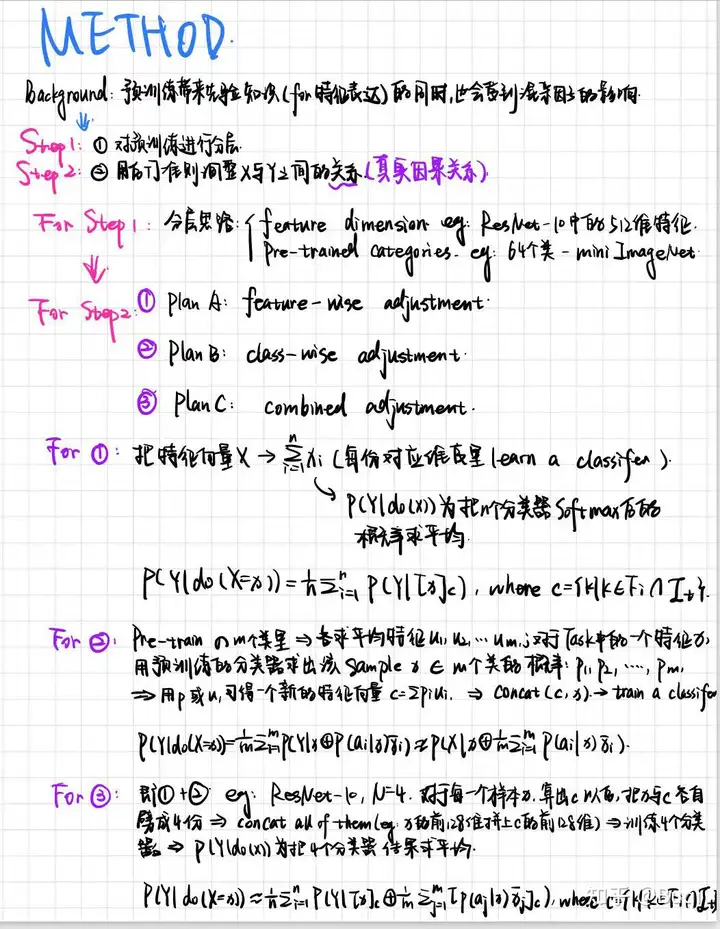 METHOD.
Background: 预训练带来先验知识(for 特征表达)的同时,也会受到混杂因子的影响.
Step1: ① 对预训练进行分层.
Step2: ② 用后门准则调整X与Y之间的关系(真实因果关系)
For Step1: 分层思路: { feature dimension eg: ResNet-10中的512维特征.
Pre-trained categories. eg: 64个类-miniImageNet
For Step2: ① Plan A: feature-wise adjustment.
② Plan B: class-wise adjustment.
③ Plan C: combined adjustment.
For ①: 把特征向量X → Σ_{i=1}^{n} x_i (每份对应维度里 learn a classifer).
P(Y|do(X))为把n个分类器Softmax后的
概率求平均.
P(Y|do(X=x)) = 1/n Σ_{i=1}^{n} P(Y|[x]_c), where c={k|k∈F_i∩I_t}.
For ②: Pre-train 的m个类里 ⇒ 各求平均特征 u_1, u_2, ... u_m.; 对于Task中的一个特征x,
用预训练的分类器求出该 Sample x ∈ m个类的概率: p_1, p_2, ..., p_m,
⇒ 用p或u,可得一个新的特征向量 c=Σp_iu_i. ⇒ concat(c, x). → train a classifer
P(Y|do(X=x)) = 1/m Σ_{i=1}^{m} P(Y|x⊕P(a_i|x)x̄_i) ≈ P(X|x⊕1/m Σ_{i=1}^{m} P(a_i|x)x̄_i).
For ③: 即①+② eg: ResNet-10, N=4. 对于每一个样本x, 算出c以后, 把x与c各自
劈成4份 ⇒ concat all of them (eg: x的前128维拼上c的前128维) ⇒ 训练4个分类
器 ⇒ P(Y|do(x))为把4个分类器结果求平均.
P(Y|do(X=x)) ≈ 1/n Σ_{i=1}^{n} P(Y|[x]_c ⊕ 1/m Σ_{j=1}^{m} [P(a_j|x)x̄_j]_c), where c={k|k∈F_i∩I_t}
知乎